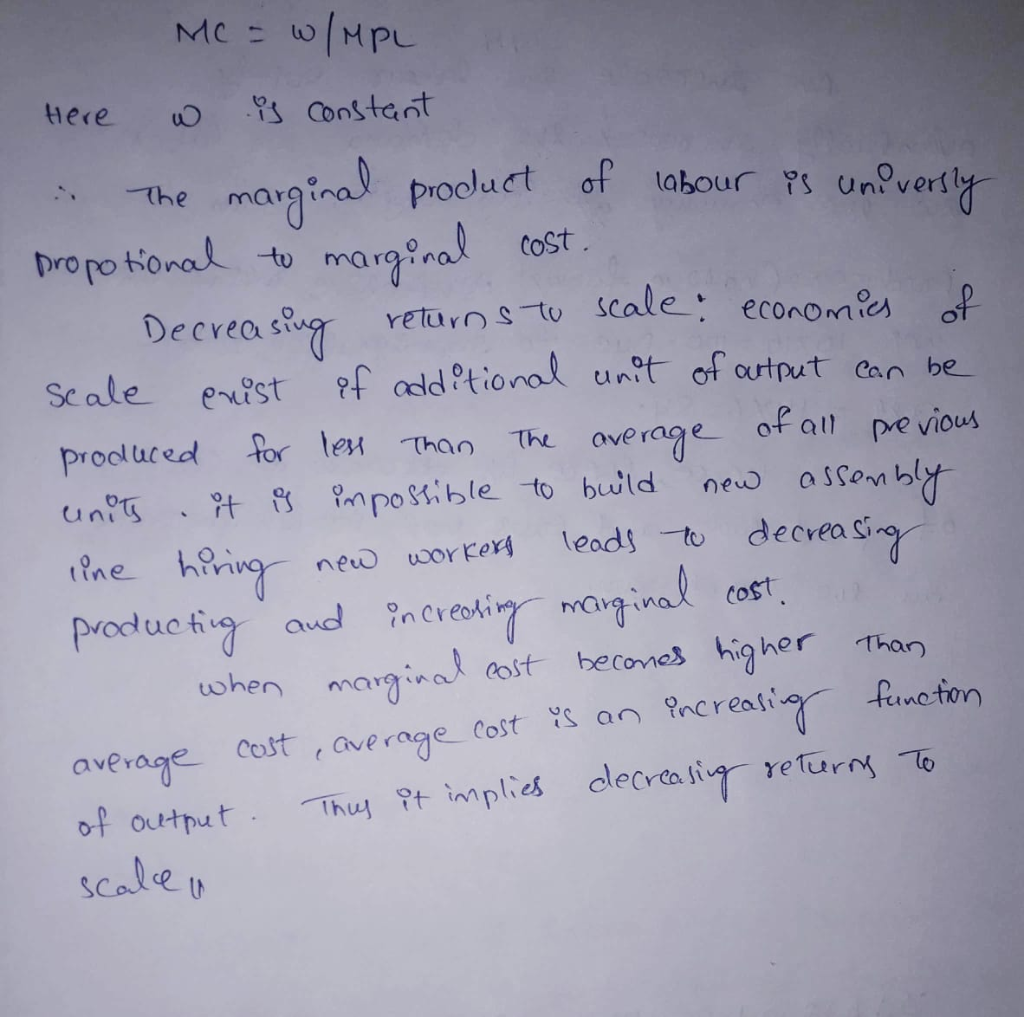 MC = w/MPL
Here w is constant
∴ The marginal product of labour is universly
propotional to marginal cost.
Decreasing returns to scale: economies of
scale exist if additional unit of output can be
produced for less than the average of all previous
units. it is impossible to build new assembly
line hiring new workers leads to decreasing
producting and increasing marginal cost.
when marginal cost becomes higher than
average cost, average cost is an increasing function
of output. Thus it implies decreasing returns to
scale